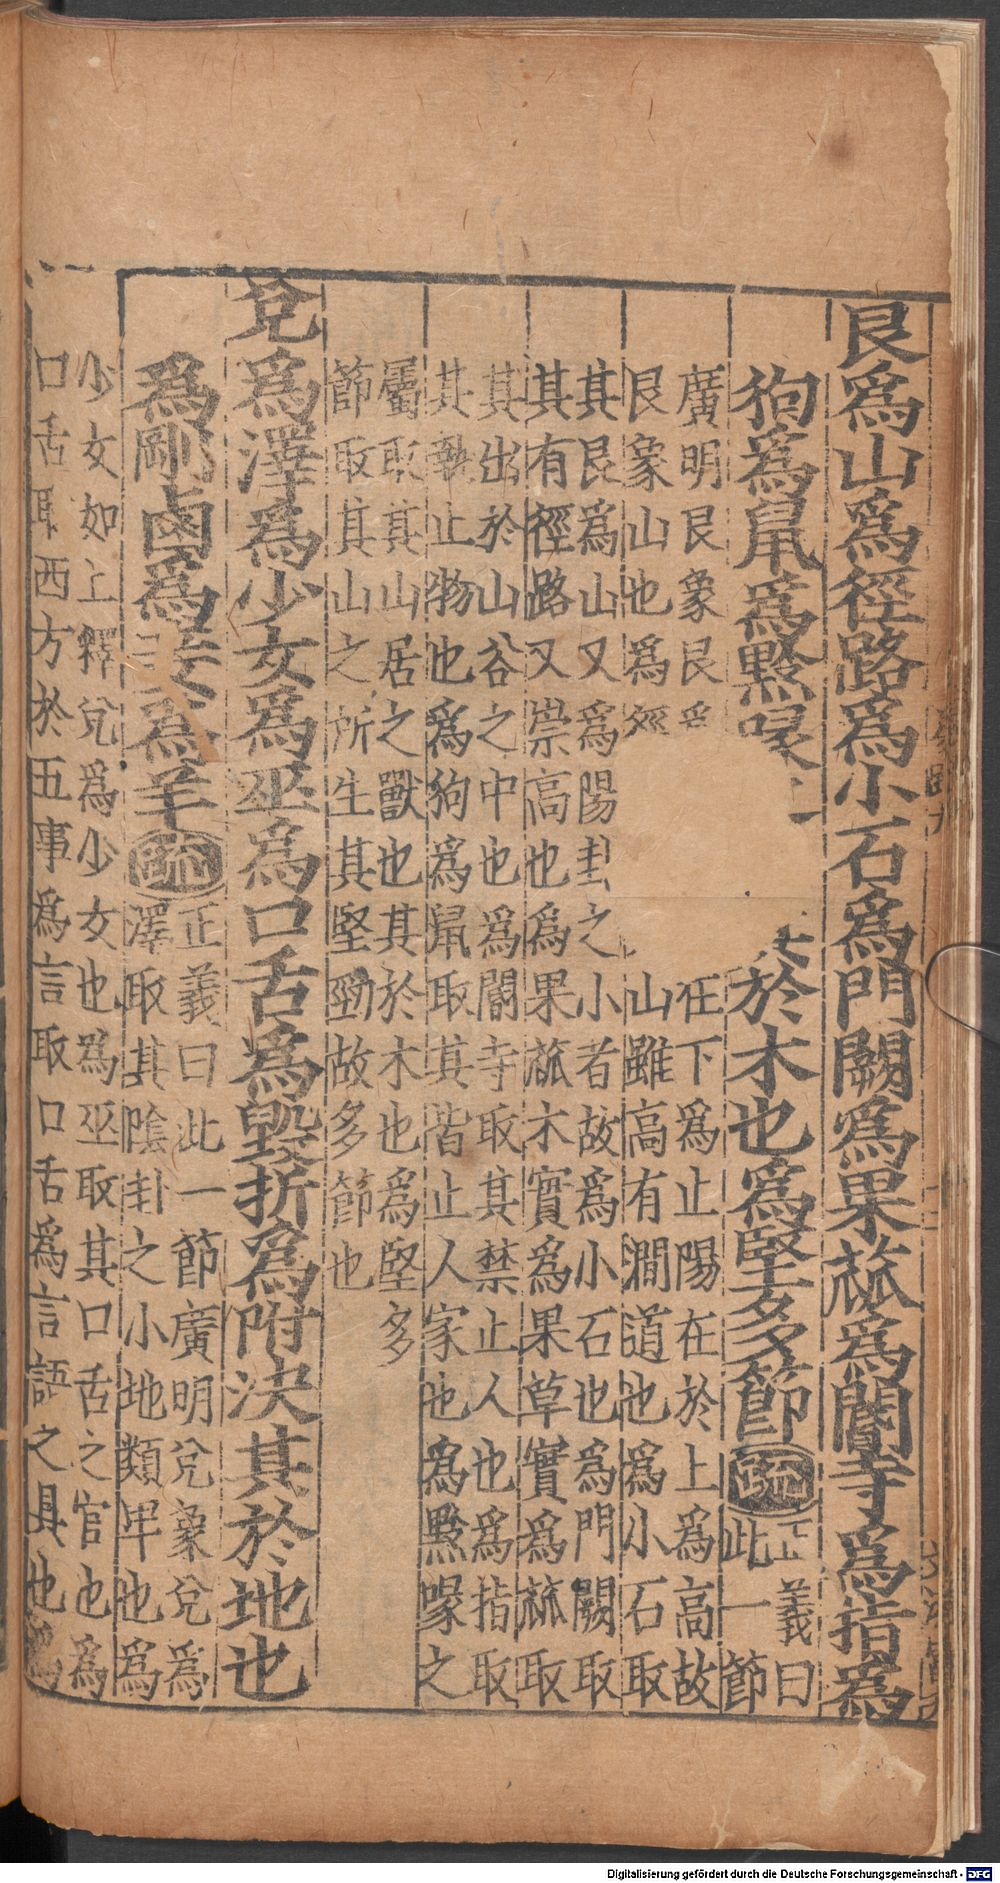 艮爲山爲徑路爲小石爲門闕爲果蓏爲閽寺爲指爲
狗爲鼠爲黔喙 於木也爲堅多節疏正義曰
此一節
廣明艮象艮爲 在下爲止陽在於上爲高故
艮象山也爲徑 山雖高有澗道也爲小石取
其艮爲山又爲陽卦之小者故爲小石也爲門闕取
其有徑路又崇高也爲果蓏木實爲果草實爲蓏取
其出於山谷之中也爲閽寺取其禁止人也爲指取
其執止物也爲狗爲鼠取其皆止人家也爲黔喙之
屬取其山居之獸也其於木也爲堅多
節取其山之所生其堅勁故多節也
兌爲澤爲少女爲巫爲口舌爲毀折爲附決其於地也
爲剛鹵爲妾爲羊疏正義曰此一節廣明兌象兌爲
澤取其陰卦之小地類卑也爲
少女如上釋兌爲少女也爲巫取其口舌之官也爲
口舌取西方於五事爲言取口舌爲言語之具也爲
Digitalisierung gefördert durch die Deutsche Forschungsgemeinschaft - DFG